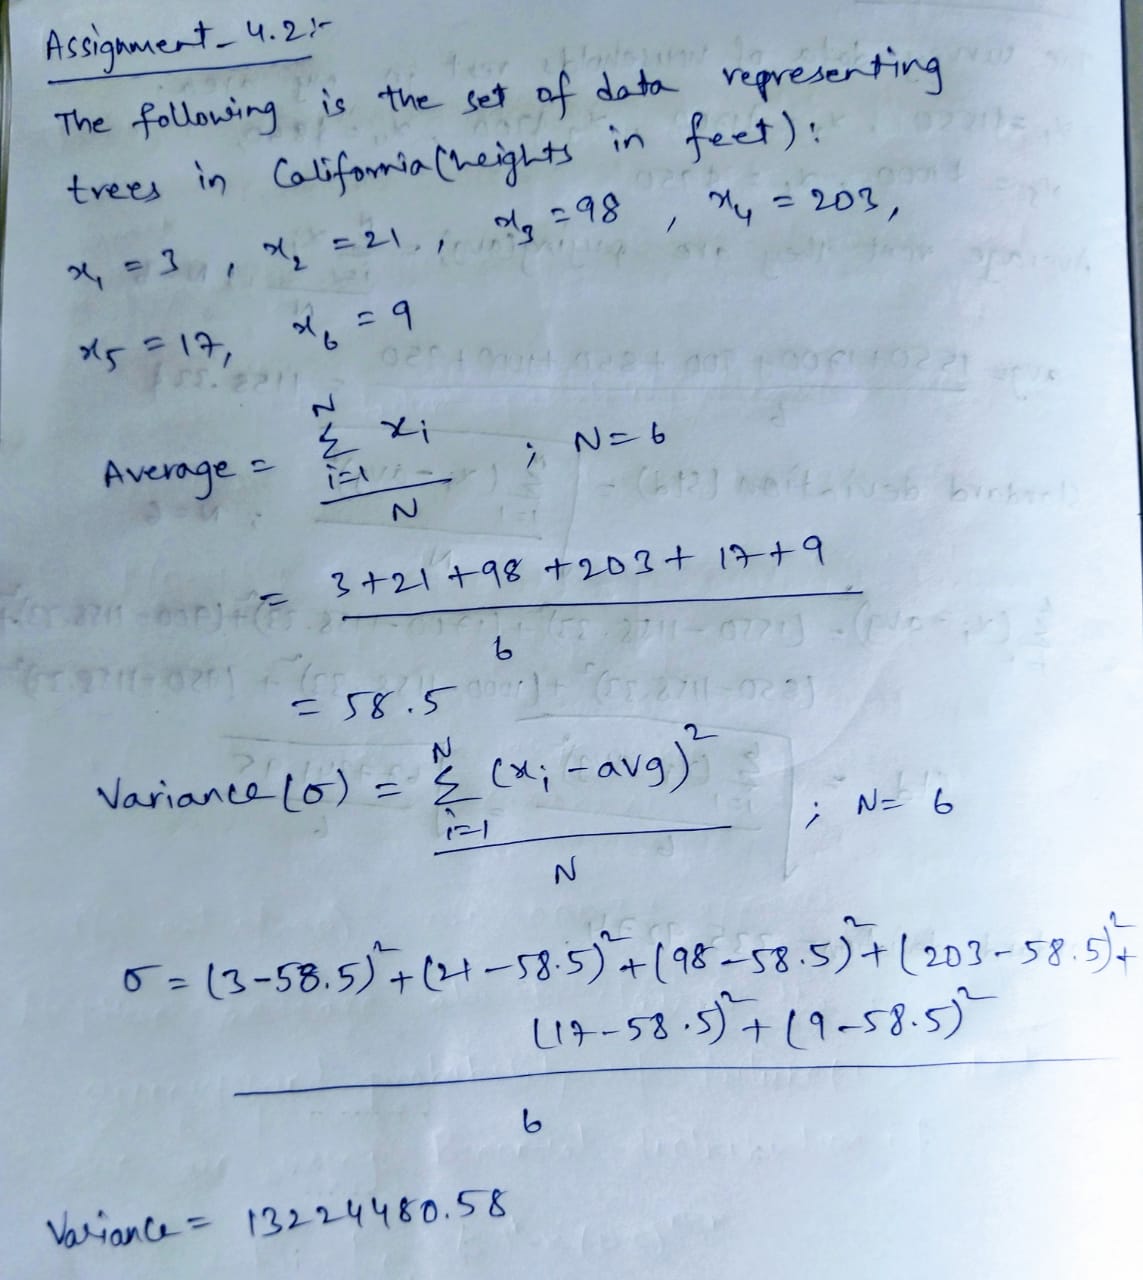 Assignment - 4.2:-
The following is the set of data representing
trees in California (heights in feet):
x₁ = 3, x₂ = 21, x₃ = 98, x₄ = 203,
x₅ = 17, x₆ = 9
N
Average = Σ xᵢ ; N = 6
i=1
N
= 3+21+98+203+17+9
6
= 58.5
N
Variance (σ) = Σ (xᵢ - avg)² ; N = 6
i=1
N
σ = (3-58.5)² + (21-58.5)² + (98-58.5)² + (203-58.5)² +
(17-58.5)² + (9-58.5)²
6
Variance = 13224480.58